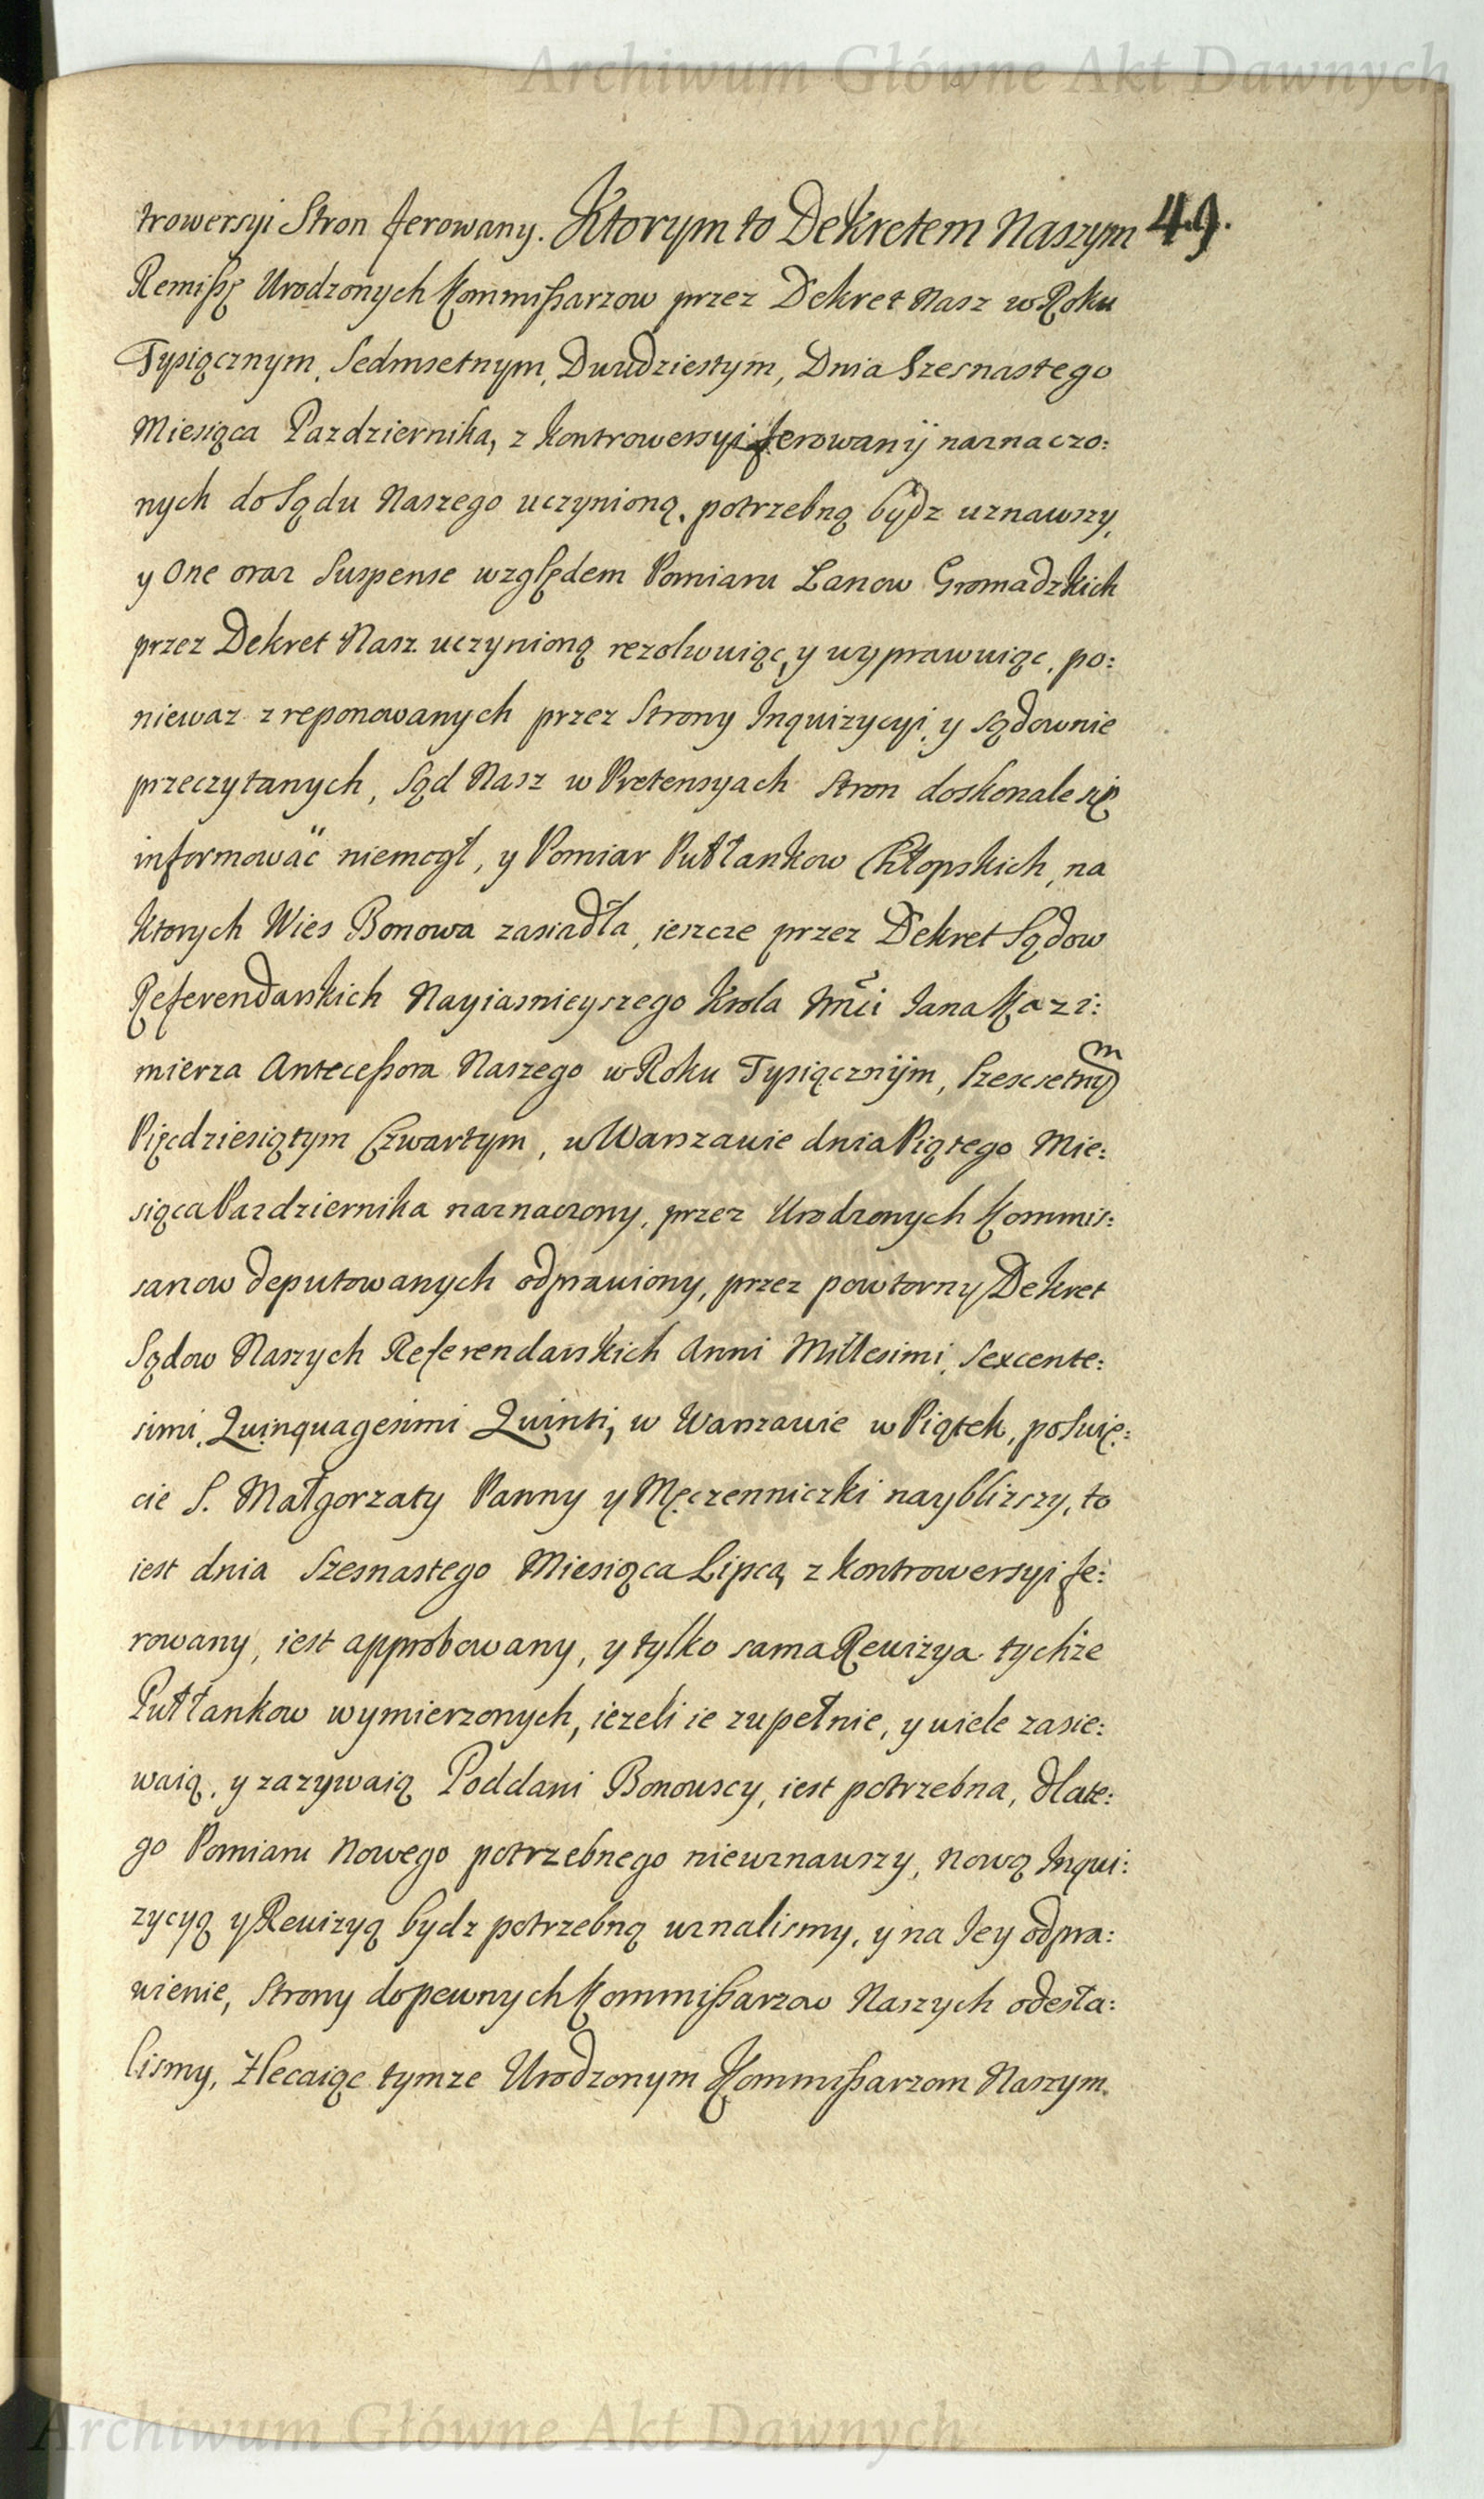 Archiwum Główne Akt Dawnych
trowersyi Stron ferowany. Ktorym to Dekretem Naszym 49.
Remißę Urodzonych Kommißarzow przez Dekret Nasz w Roku
Tysiącznym, Sedmsetnym, Dwudziestym, Dnia Szesnastego
Miesiąca Pazdziernika, z kontrowersyi ferowanÿ naznaczo:
nych do Sądu Naszego uczynioną, potrzebną bydz uznawszy,
y One oraz Suspense względem Pomiaru Lanow Gromadzkich
przez Dekret Nasz uczynioną rezolwuiąc, y wyprawuiąc, po:
niewaz z reponowanych przez Strony Inquizycyi, y sądownie
przeczytanych, Sąd Nasz w Pretensyach Stron doskonale się
informowac niemogł, y Pomiar Pułłankow Chłopskich, na
ktorych Wies Bonowa zasiadła, ieszcze przez Dekret Sądow
Referendarskich Nayiasnieyszego Krola Jmći Jana Kazi:
mierza Anteceßora Naszego w Roku Tysiącznÿm, Szescsetnym
Pięcdziesiątym Czwartym, w Warszawie dnia Piątego Mie:
siąca Pazdziernika naznaczony, przez Urodzonych Kommis:
sarzow deputowanych odprawiony, przez powtorny Dekret
Sądow Naszych Referendarskich Anni Millesimi, Sexcente:
simi, Quinquagesimi Quinti, w Warszawie w Piątek, po Swię:
cie S. Małgorzaty Panny y Męczenniczki nayblizszy, to
iest dnia Szesnastego Miesiąca Lipca, z kontrowersyi fe:
rowany, iest approbowany, y tylko sama Rewizya tychże
Pułłankow wymierzonych, iezeli ie zupełnie, y wiele zasie:
waią, y zazywaią Poddani Bonowscy, iest potrzebna, dlate:
go Pomiaru Nowego potrzebnego nieuznawszy, nową Inqui:
zycyą y Rewizyą bydz potrzebną uznalismy, y na Jey odpra:
wienie, Strony do pewnych Kommißarzow Naszych odesła:
lismy, Zlecaiąc tymze Urodzonym Kommißarzom Naszym.
Archiwum Główne Akt Dawnych